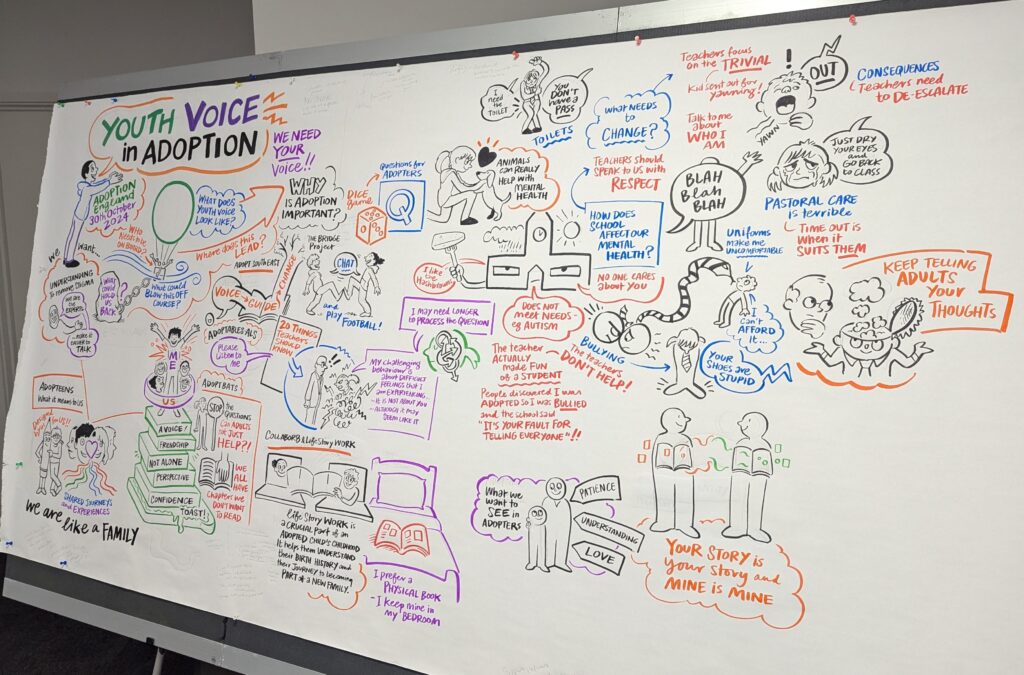 YOUTH VOICE
in ADOPTION
WE NEED
YOUR
VOICE!!
ADOPTION
England
30th October
2024
WHAT DOES
YOUTH VOICE
LOOK LIKE?
WHO
NEEDS to BE
on BOARD?
Where does this
LEAD?
What could
BLOW this OFF
COURSE?
we want
UNDERSTANDING
to remove STIGMA
We are the
EXPERTS
make it
easier to
TALK
WHAT
COULD
HOLD US
BACK
WHY
is ADOPTION
IMPORTANT?
DICE
game
QUESTIONS for
ADOPTERS
Q
THE BRIDGE
Project
CHAT
and
PLAY FOOTBALL!
CHANGE
ADOPT SOUTH EAST
VOICE
GUIDE
ADOPTABLES ALS
Please
Listen to
me
20 THINGS
TEACHERS
SHOULD
KNOW
ME
US
A VOICE!
FRIENDSHIP
NOT ALONE
PERSPECTIVE
CONFIDENCE
TOAST!
ADOPTEENS
What it means to US
SHARED JOURNEYS
and EXPERIENCES
We are like a FAMILY
ADOPT BATS
STOP
the
QUESTIONS
Can ADULTS
not JUST
HELP?!
WE
ALL
HAVE
Chapters we
DON'T WANT
to READ
I may need LONGER
to PROCESS the QUESTION
My challenging
behaviour is
about DIFFICULT
FEELINGS that I
am EXPERIENCING
- It is NOT about YOU
- ALTHOUGH it may
SEEM like it
Life Story WORK
Life Story WORK is
a CRUCIAL PART of an
ADOPTED CHILD'S CHILDHOOD
It helps them UNDERSTAND
their BIRTH HISTORY and
their JOURNEY to becoming
PART of a NEW FAMILY.
I prefer a
PHYSICAL BOOK
- I keep mine in
my BEDROOM
I need
the
TOILET
YOU
DON'T
have a
PASS
TOILETS
ANIMALS
can REALLY
HELP with
MENTAL
HEALTH
WHAT NEEDS
to
CHANGE?
TEACHERS SHOULD
SPEAK to US with
RESPECT
HOW DOES
SCHOOL
AFFECT OUR
MENTAL
HEALTH?
NO ONE CARES
about YOU
I like
the
Hashbrowns
DOES NOT
meet NEEDS -
eg AUTISM
The teacher
ACTUALLY
made FUN
of a STUDENT
People discovered I was
ADOPTED so I was BULLIED
and the school said
"IT'S YOUR FAULT for
TELLING EVERYONE"!!
BULLYING
The teachers
DON'T HELP!
Teachers focus
on the TRIVIAL
Kid sent out for
yawning!
!
YAWN
OUT
CONSEQUENCES
Teachers need
to DE-ESCALATE
Talk to me
about
WHO I
AM
BLAH
BLah
BLAH
JUST DRY
YOUR EYES
and GO
BACK to
CLASS
PASTORAL CARE
is terrible
TIME OUT is
When it
SUITS THEM
UNIFORMS
make me
UNCOMFORTABLE
I
Can't
AFFORD
it...
YOUR
SHOES are
STUPID
KEEP TELLING
ADULTS
YOUR
THOUGHTS
What we
want to
SEE in
ADOPTERS
PATIENCE
UNDERSTANDING
LOVE
YOUR STORY is
your STORY and
MINE is MINE